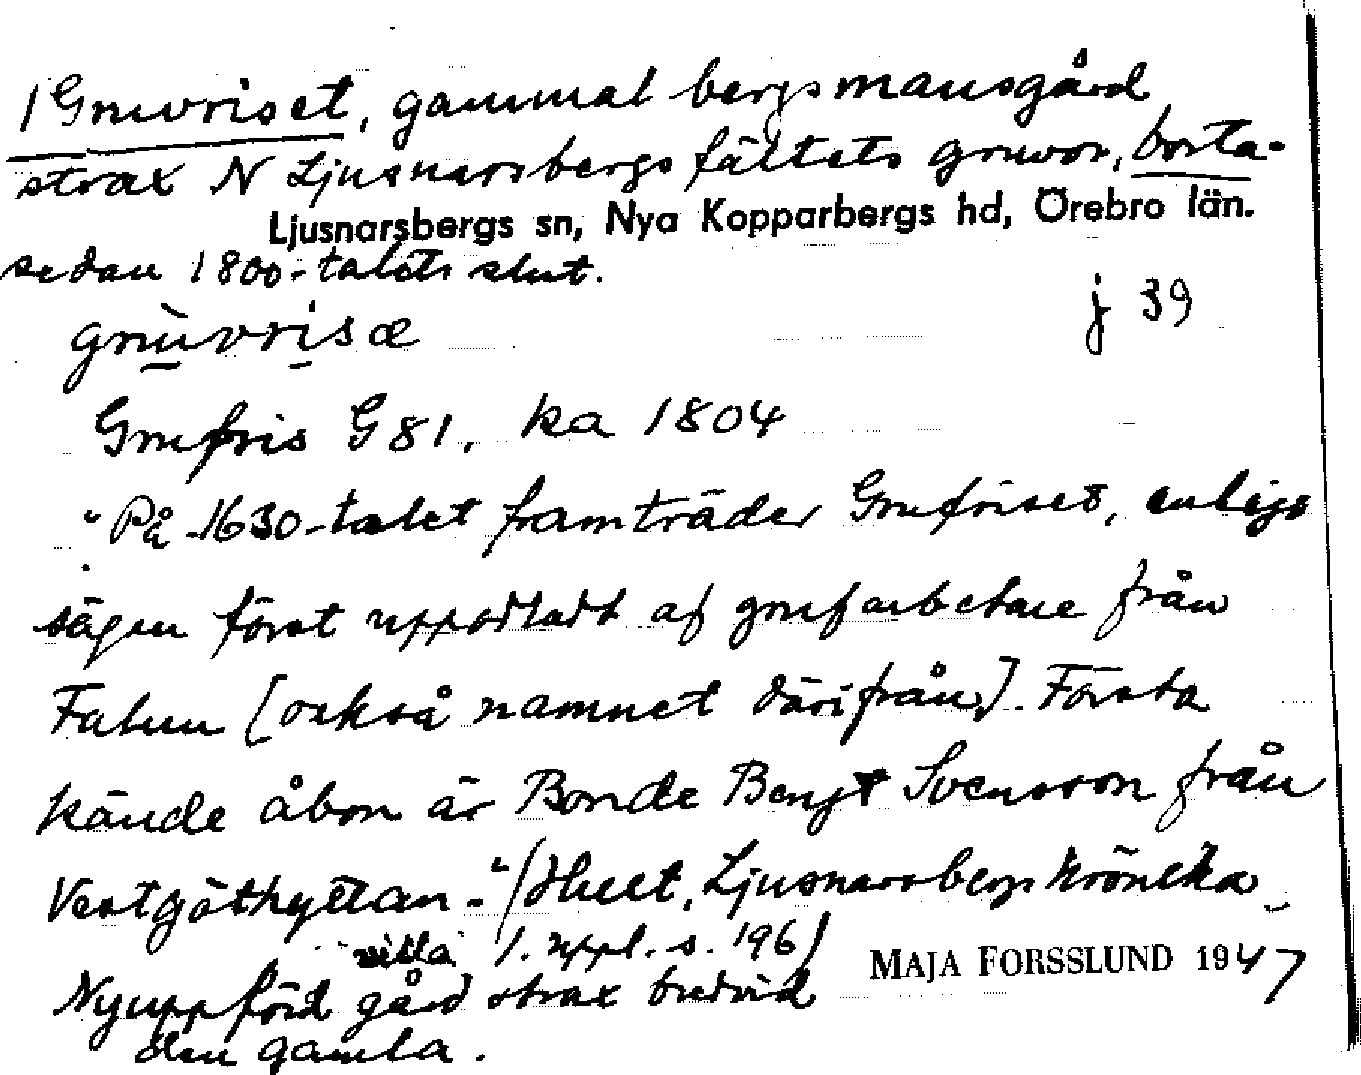 /Gruvriset, gammal bergsmansgård
strax N Ljusnarsbergsfältets gruvor, borta
Ljusnarsbergs sn, Nya Kopparbergs hd, Örebro län.
sedan 1800-talets slut.
j 39
grùvrisæ
Grufris G 81, ka 1804
"På 1630-talet framträder Grufriset, enligt
sägen först uppodladt af grufarbetare från
Falun [också namnet därifrån]. Första
kände åbon är Bonde Bengt Svensson från
Vestgöthyttan." (Hult, Ljusnarsbergs krönika
1. uppl. s. 196)
villa
MAJA FORSSLUND 1947
Nyuppförd gård strax bredvid
den gamla.